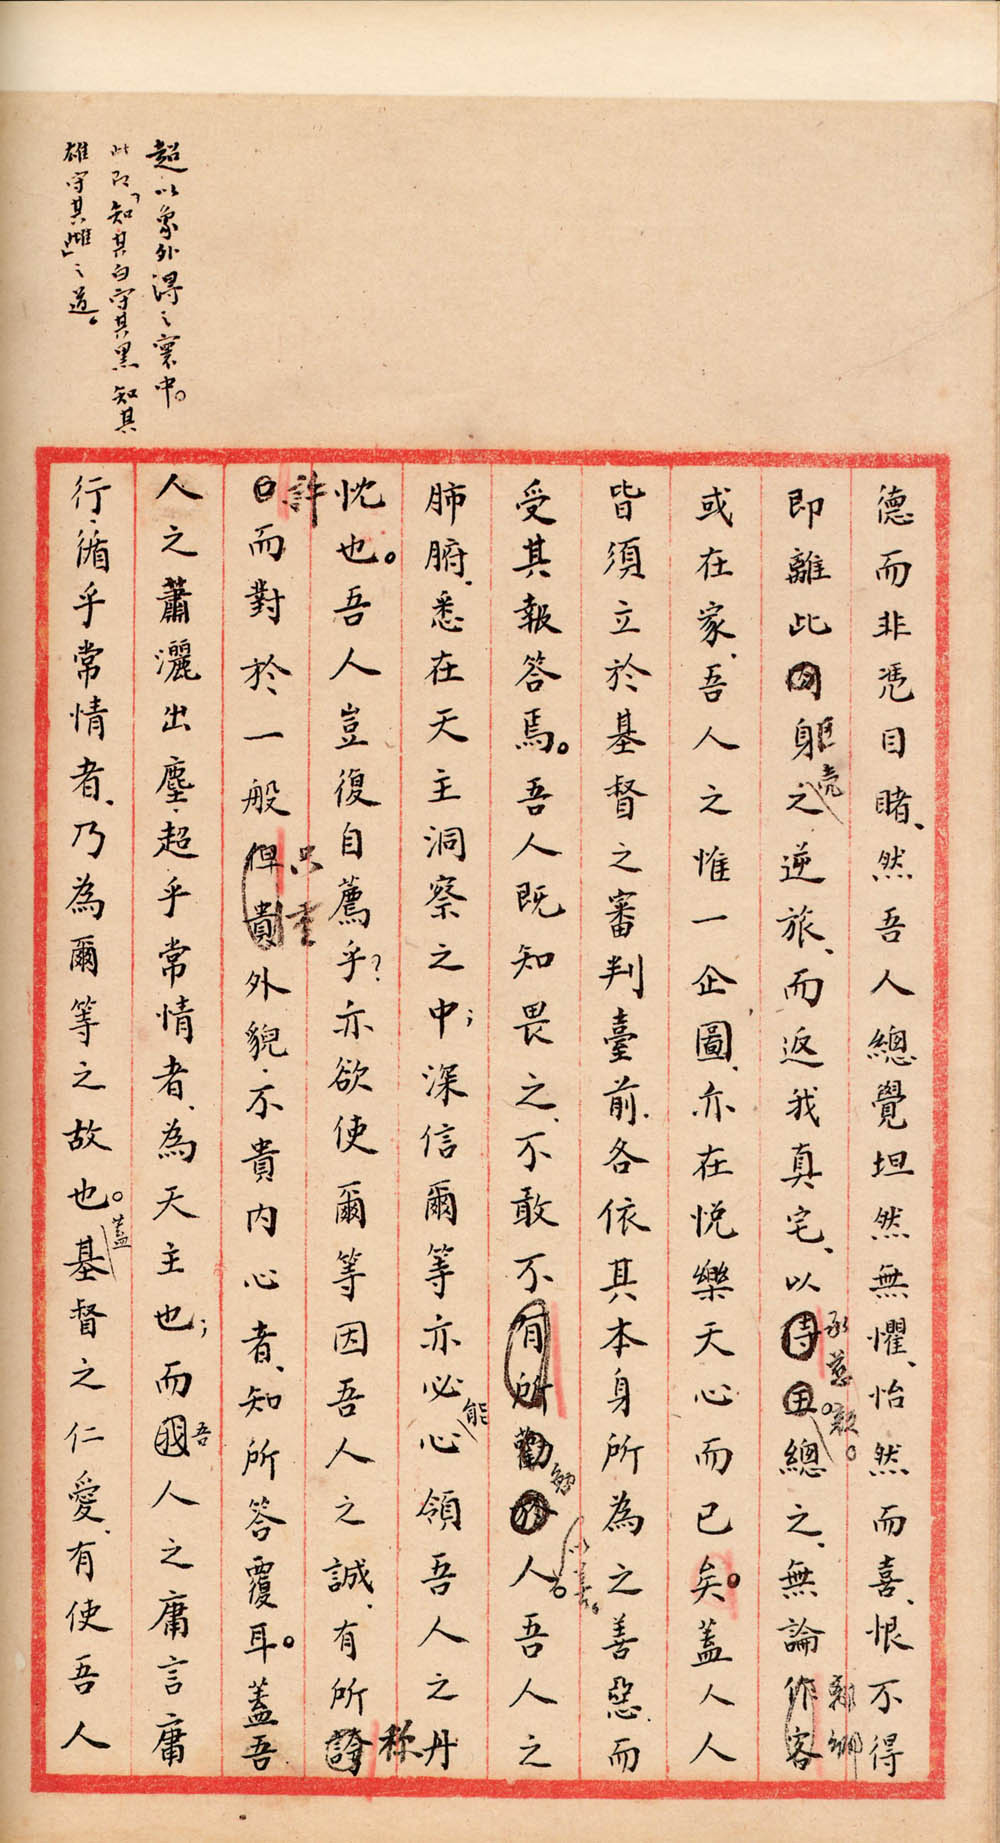 超以象外得之寰中。
此即「知其白守其黑知其
雄守其雌」之道。
德而非憑目睹、然吾人總覺坦然無懼、怡然而喜、恨不得
即離此身軀壳之逆旅、而返我真宅、以承慈親。總之、無論作客
或在家、吾人之惟一企圖、亦在悅樂天心而已矣。蓋人人
皆須立於基督之審判臺前、各依其本身所為之善惡、而
受其報答焉。吾人既知畏之、不敢不有所勸勉人以善。吾人之
肺腑、悉在天主洞察之中;深信爾等亦必能心領吾人之丹
忱也。吾人豈復自薦乎?亦欲使爾等因吾人之誠、有所誇称
許而對於一般只重外貌、不貴內心者、知所答覆耳。蓋吾
人之蕭灑出塵、超乎常情者、為天主也;而吾人之庸言庸
行、循乎常情者、乃為爾等之故也。蓋基督之仁愛、有使吾人